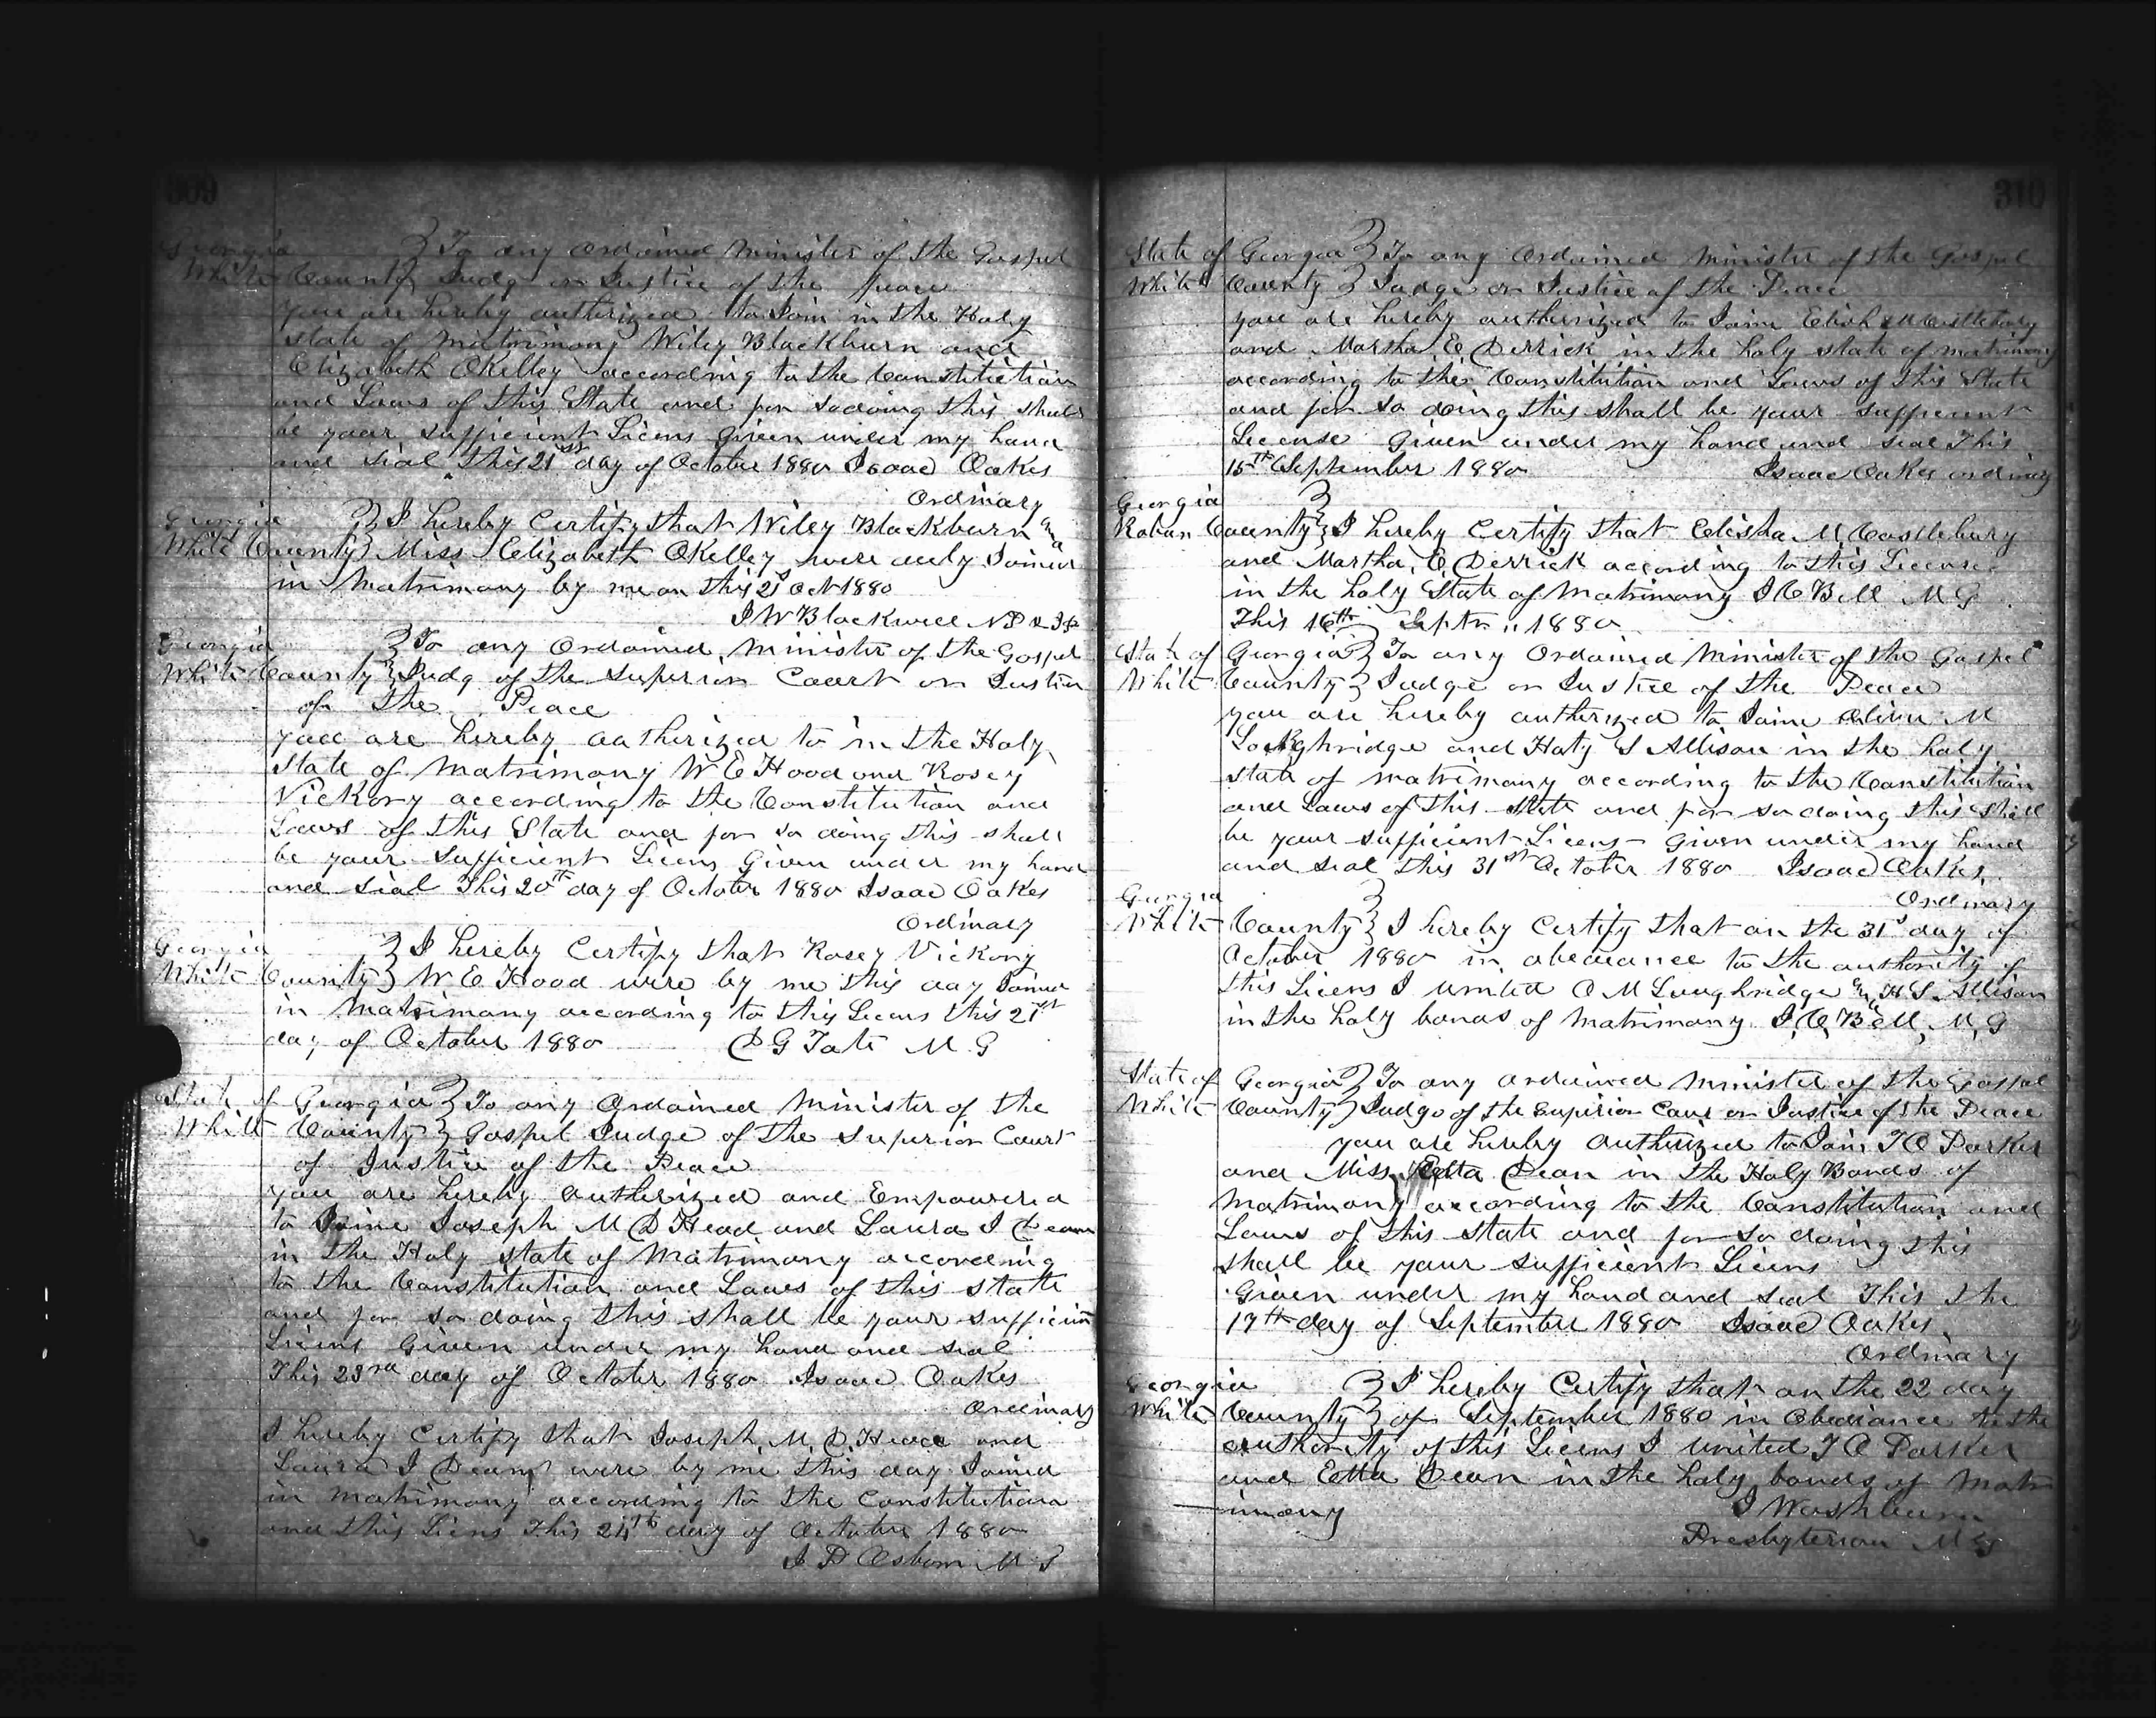 309
Georgia } To any Ordained Minister of the Gospel
White County } Judg or Justice of the peace
You are hereby autherized to Join in the Holy
state of Matrimony Wiley Blackburn and
Elizabeth OKelley according to the Constitution
and Laws of this State and for sodoing this shall
be your sufficient Licens Given under my hand
and seal this 21st day of October 1880 Isaac Oakes
Ordinary
Georgia } I hereby Certify that Wiley Blackburn and
White County } Miss Elizabeth OKelley were duly Joined
in Matrimony by me on this 21s Oct 1880
J W Blackwell N P & J P
Georgia } To any Ordained Minister of the Gospel
White County } Judg of the Superior Court or Justice
of the Peace
you are hereby autherized to in the Holy
State of Matrimony W E Hood and Rosey
Vickory according to the Constitution and
Laws of this State and for so doing this shall
be your Sufficient Licens Given under my hand
and seal This 20th day of October 1880 Isaac Oakes
Ordinary
Georgia } I hereby Certify that Rosey Vickory
White County } W E Hood were by me this day Joined
in Matrimony according to this Licens this 21st
day of October 1880 D G Tate M G
State of Georgia } To any Ordained Minister of the
White County } Gospel Judge of the Superior Court
of Justice of the Peace
you are hereby Autherized and Empowered
to Joine Joseph M D Head and Laura I Dean
in the Holy state of Matrimony according
to the Constitution and Laws of this state
and for so doing this shall be your sufficient
Licens Given under my hand and seal
This 23rd day of October 1880 Isaac Oakes
Ordinary
I hereby Certify that Joseph M. D. Head and
Laura I Dean were by me this day Joined
in matrimony according to the Constitution
and this Licens This 24th day of October 1880
J D Osborn M G
310
State of Georgia } To any Ordained Minister of the Gospel
White County } Judge or Justice of the Peace
you are hereby autherized to Joine M Castlebury
and Martha E Derrick in the holy state of matrimony
according to the Constitution and Laws of this State
and for so doing this shall be your sufficient
License Given under my hand and seal This
15th September 1880 Isaac Oakes ordinary
Georgia }
Rabun County } I hereby Certify that Elisha M Castlebury
and Martha E Derrick according to this License
in the holy State of Matrimony J C Bell M G
This 16th Septr " 1880
State of Georgia } To any Ordained Minister of the Gospel
White County } Judge or Justice of the Peace
you are hereby autherized to Joine Oliver M
Loughridge and Haty S Allison in the holy
state of matrimony according to the Constitution
and Laws of this State and for so doing this shall
be your sufficient Licens Given under my hand
and seal this 31st October 1880 Isaac Oakes
Ordinary
Georgia }
White County } I hereby Certify that on the 31s day of
October 1880 in abediance to the authority of
this Licens I united O M Loughridge and H S Allison
in the holy bonds of Matrimony J. C. Bell, M, G
State of Georgia } To any ordained Minister of the Gospel
White County } Judge of the Superior Cour or Justice of the Peace
you are hereby Autherized to Join T O Parker
and Miss Etta Dean in the Holy Bonds of
Matrimony according to the Constitution and
Laws of this state and for so doing this
shall be your sufficient Licens
Given under my hand and seal This the
17th day of September 1880 Isaac Oakes
Ordinary
Georgia } I hereby Certify that on the 22 day
White County } of September 1880 in Obediance to the
authority of this Licens I united T O Parker
and Etta Dean in the holy bonds of Matr
imony
J Washburn
Presbyterian M G